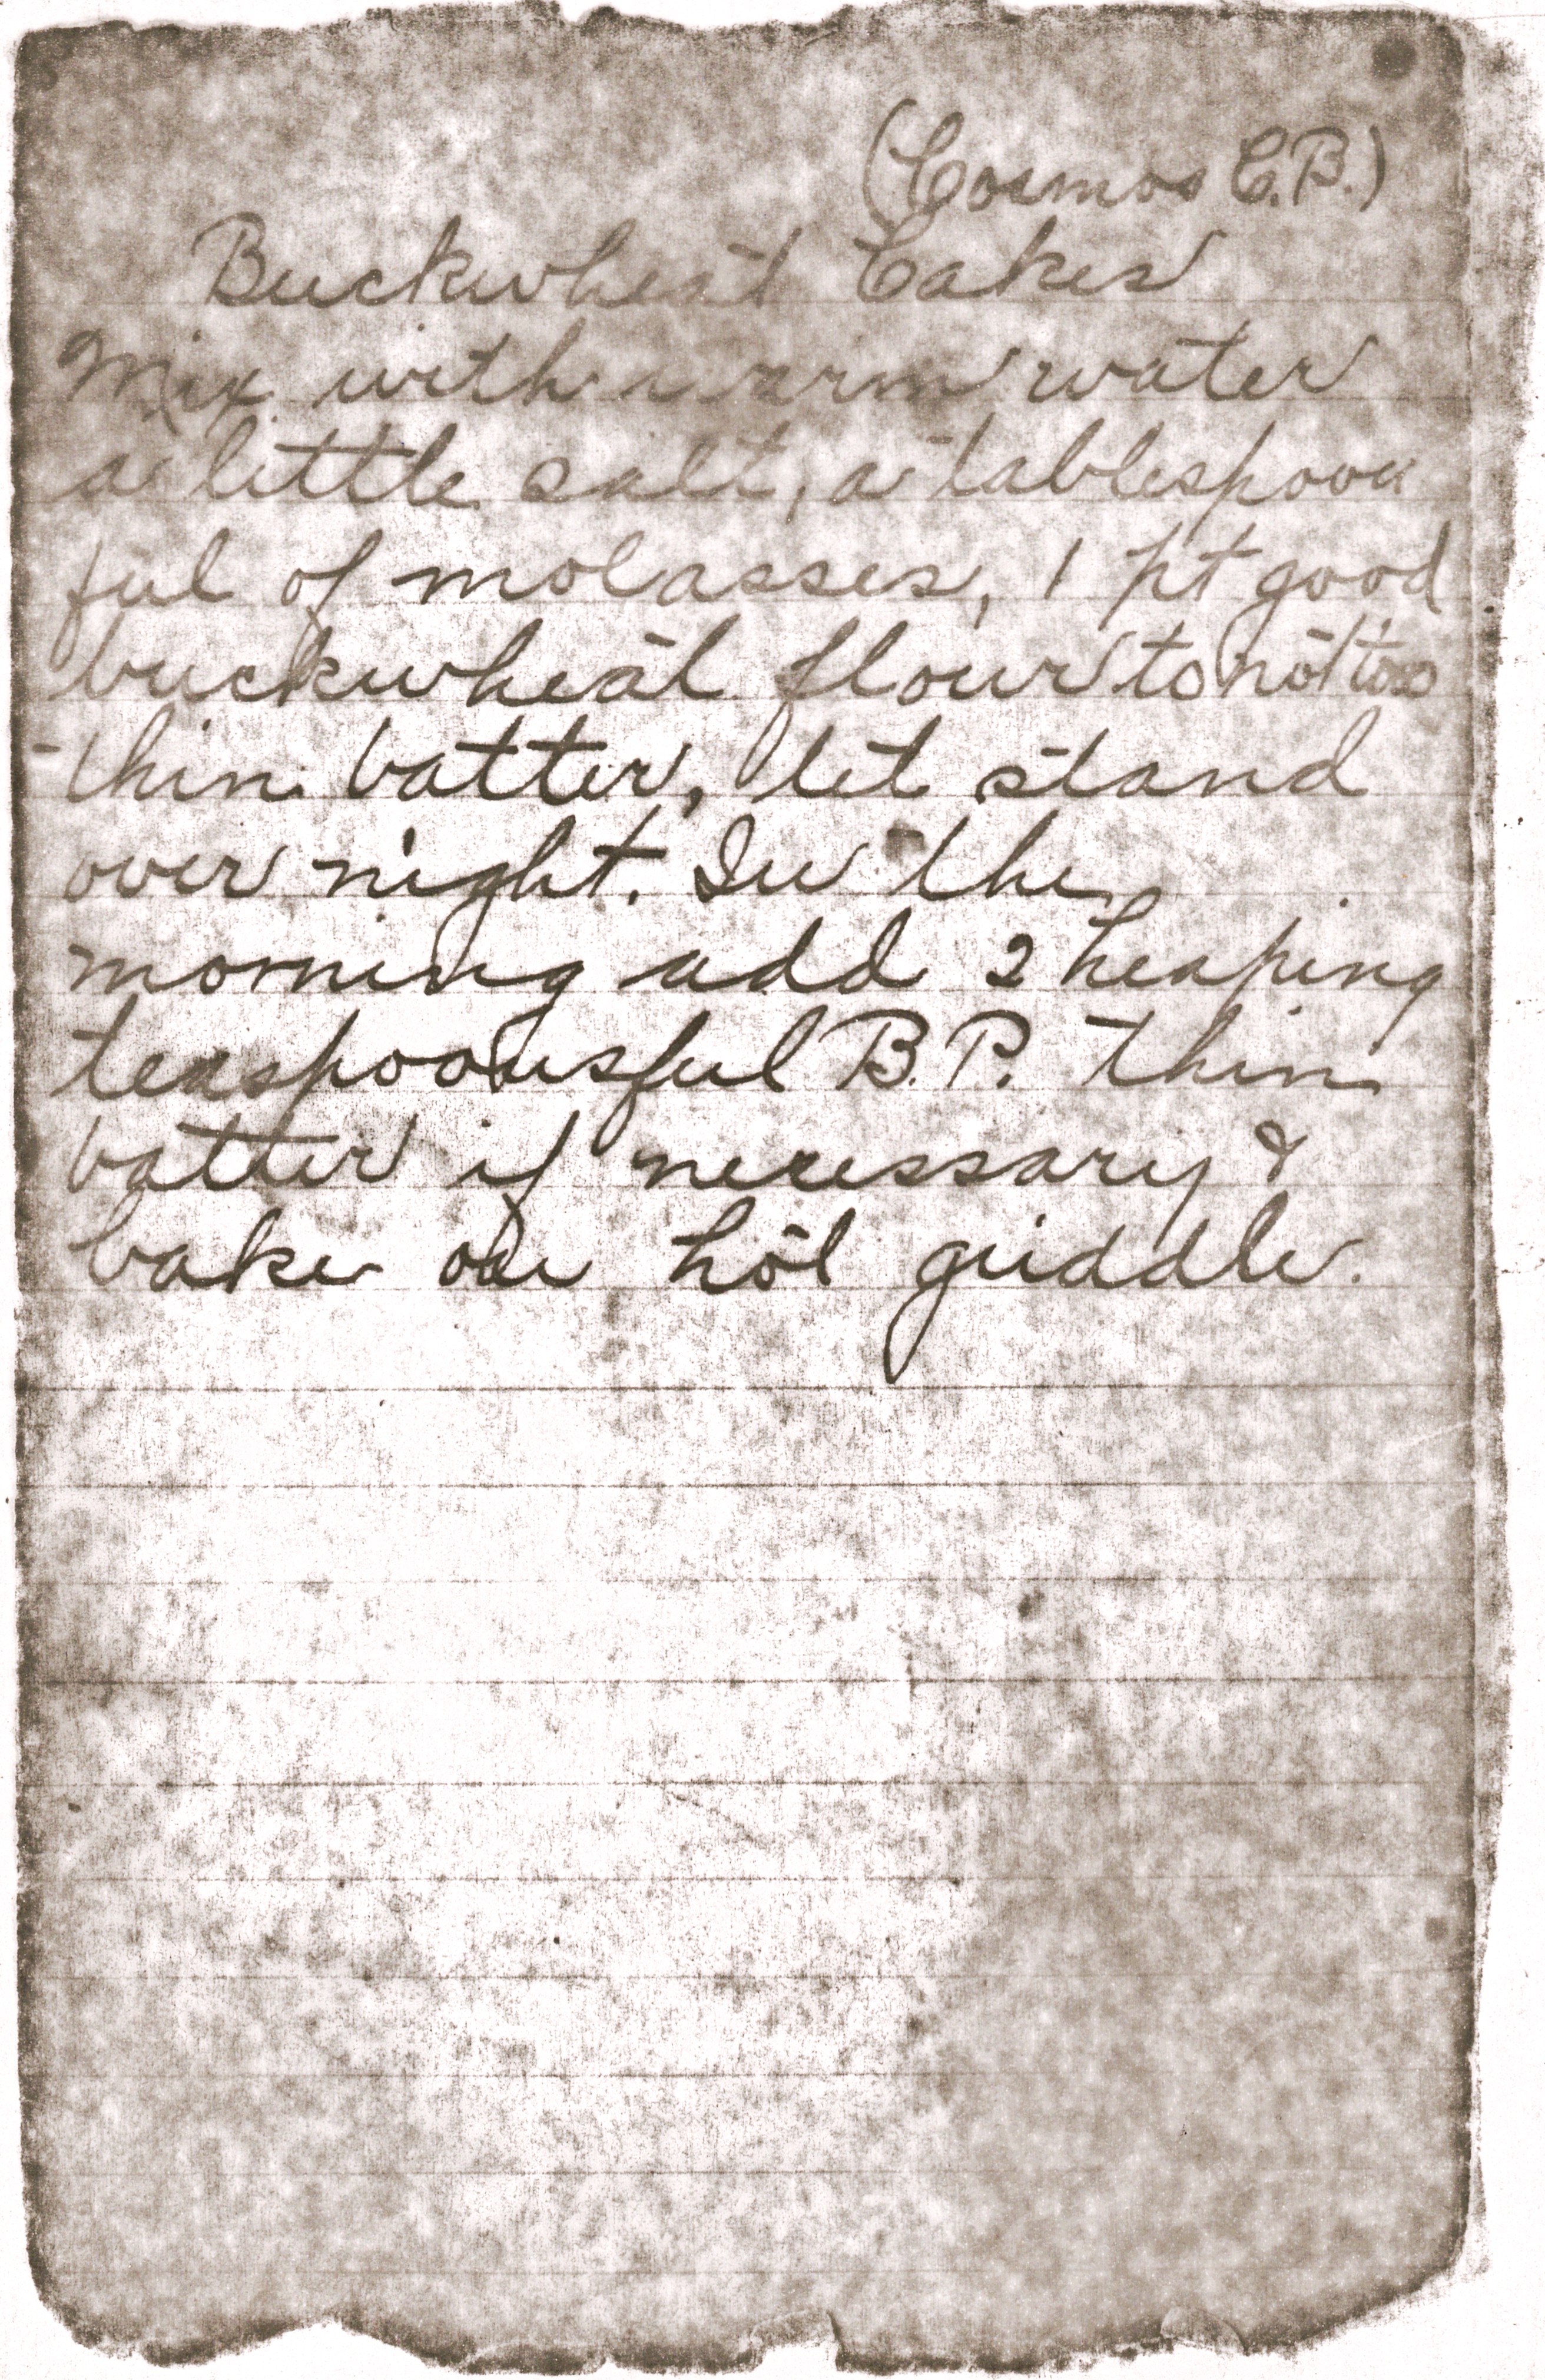 (Cosmos C.B.)
Buckwheat Cakes
Mix with warm water
a little salt, a tablespoon
ful of molasses, 1 pt good
buckwheat flour to not too
thin batter, let stand
over night. In the
morning add 2 heaping
teaspoonsful B.P. Thin
batter if necessary &
bake on hot griddle.